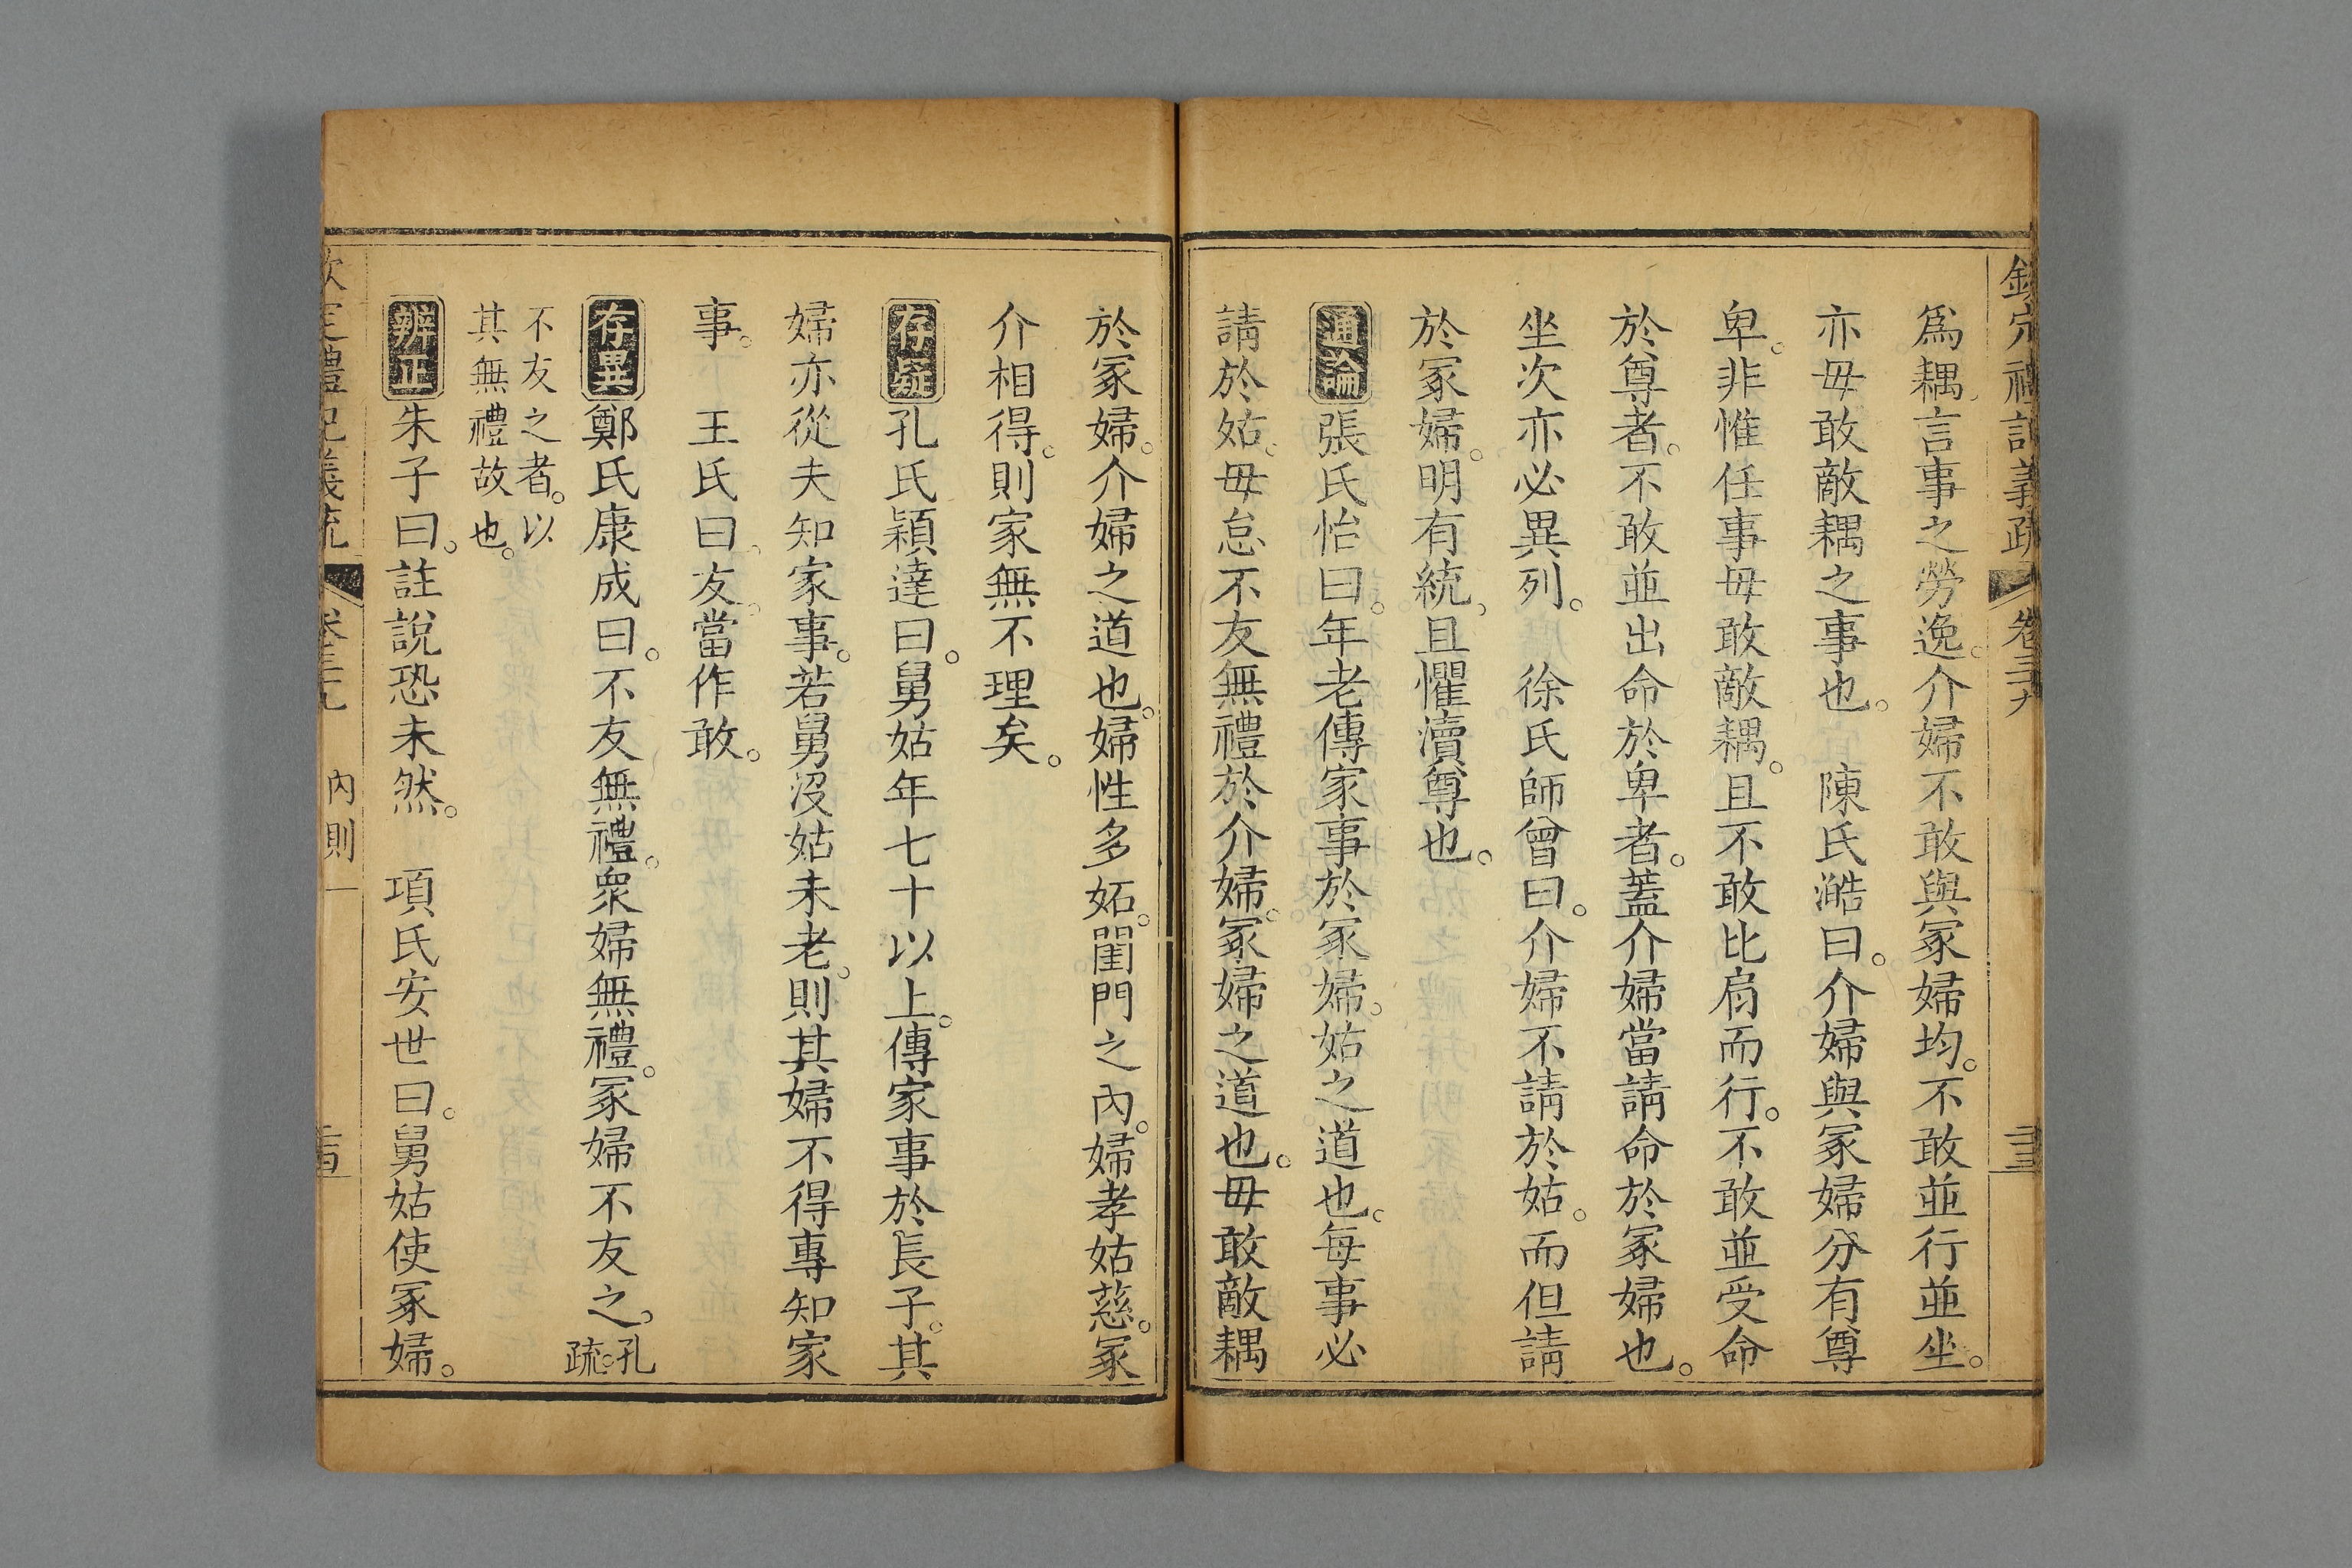 欽定禮記義疏 卷三十九 三三
爲耦。言事之勞逸。介婦不敢與冢婦均。不敢並行並坐。
亦毋敢敵耦之事也。 陳氏澔曰。介婦與冢婦分有尊
卑。非惟任事毋敢敵耦。且不敢比肩而行。不敢並受命
於尊者。不敢並出命於卑者。蓋介婦當請命於冢婦也。
坐次亦必異列。 徐氏師曾曰。介婦不請於姑。而但請
於冢婦。明有統。且懼瀆尊也。
通論 張氏怡曰。年老傳家事於冢婦。姑之道也。每事必
請於姑。毋怠不友無禮於介婦。冢婦之道也。毋敢敵耦
於冢婦。介婦之道也。婦性多妬。閨門之內。婦孝姑慈。冢
介相得。則家無不理矣。
存疑 孔氏穎達曰。舅姑年七十以上。傳家事於長子。其
婦亦從夫知家事。若舅沒姑未老。則其婦不得專知家
事。 王氏曰。友。當作敢。
存異 鄭氏康成曰。不友無禮。衆婦無禮。冢婦不友之。孔疏。
不友之者。以
其無禮故也。
辨正 朱子曰。註說恐未然。 項氏安世曰。舅姑使冢婦。
欽定禮記義疏 卷三十九 內則